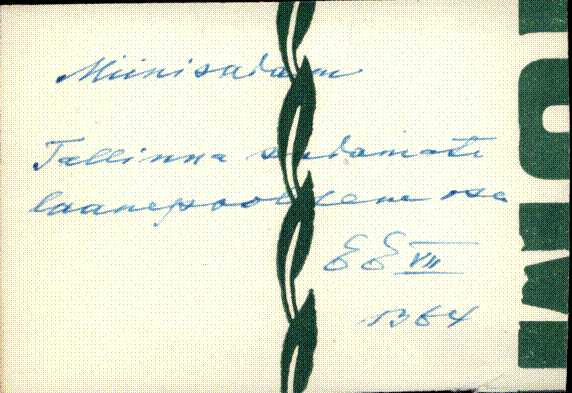 Miinisadam
Tallinna sadamate
läänepoolsem osa
EE VII
1364